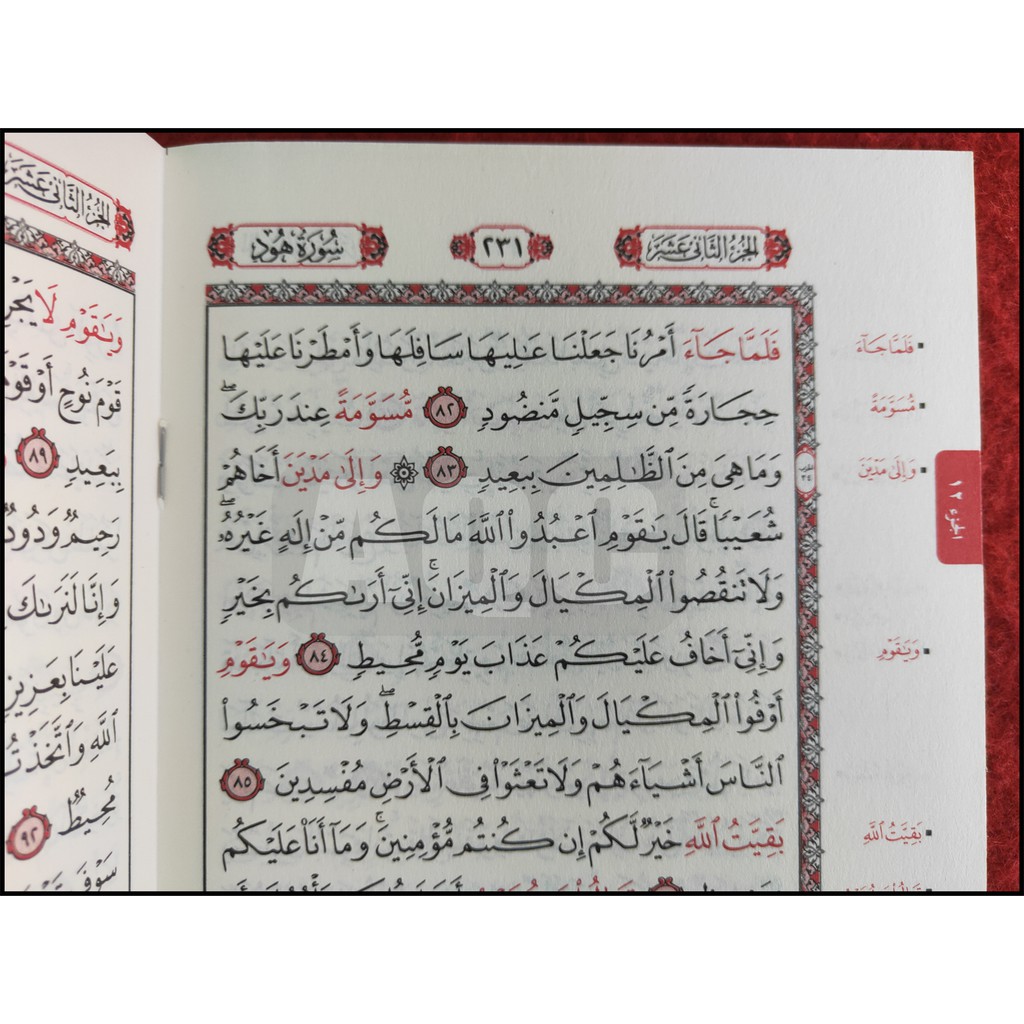 الجزء الثاني عشر
٢٣١
سورة هود
فَلَمَّا جَآءَ أَمْرُنَا جَعَلْنَا عَٰلِيَهَا سَافِلَهَا وَأَمْطَرْنَا عَلَيْهَا
حِجَارَةً مِّن سِجِّيلٍ مَّنضُودٍ ٨٢ مُّسَوَّمَةً عِندَ رَبِّكَۖ
وَمَا هِىَ مِنَ ٱلظَّٰلِمِينَ بِبَعِيدٍ ٨٣ ۞ وَإِلَىٰ مَدْيَنَ أَخَاهُمْ
شُعَيْبًاۚ قَالَ يَٰقَوْمِ ٱعْبُدُوا۟ ٱللَّهَ مَا لَكُم مِّنْ إِلَٰهٍ غَيْرُهُۥۖ
وَلَا تَنقُصُوا۟ ٱلْمِكْيَالَ وَٱلْمِيزَانَۚ إِنِّىٓ أَرَىٰكُم بِخَيْرٍ
وَإِنِّىٓ أَخَافُ عَلَيْكُمْ عَذَابَ يَوْمٍ مُّحِيطٍ ٨٤ وَيَٰقَوْمِ
أَوْفُوا۟ ٱلْمِكْيَالَ وَٱلْمِيزَانَ بِٱلْقِسْطِۖ وَلَا تَبْخَسُوا۟
ٱلنَّاسَ أَشْيَآءَهُمْ وَلَا تَعْثَوْا۟ فِى ٱلْأَرْضِ مُفْسِدِينَ ٨٥
بَقِيَّتُ ٱللَّهِ خَيْرٌ لَّكُمْ إِن كُنتُم مُّؤْمِنِينَۚ وَمَآ أَنَا۠ عَلَيْكُم
فَلَمَّا جَآءَ
مُّسَوَّمَةً
وَإِلَىٰ مَدْيَنَ
وَيَٰقَوْمِ
بَقِيَّتُ ٱللَّهِ
الجزء ١٢
الجزء الثاني عشر
وَيَٰقَوْمِ لَا
قَوْمَ نُوحٍ أَوْ
بِبَعِيدٍ ٨٩
رَحِيمٌ وَدُودٌ
وَإِنَّا لَنَرَىٰكَ
عَلَيْنَا بِعَزِيزٍ
ٱللَّهِ
مُحِيطٌ ٩٢
سَوْفَ